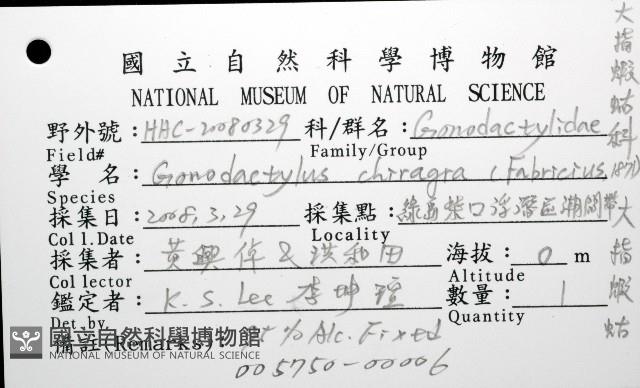 國立自然科學博物館
NATIONAL MUSEUM OF NATURAL SCIENCE
野外號：HHC-20080329 科/群名：Gonodactylidae
Field# Family/Group
學 名：Gonodactylus chiragra (Fabricius, 1871)
Species
採集日：2008,3,29 採集點：綠島柴口浮潛區潮間帶
Coll.Date Locality
採集者：黃興倬 & 洪和田 海拔：0 m
Collector Altitude
鑑定者：K. S. Lee 李坤瑄 數量：1
Det.by Quantity
備註(Remarks)： % Alc. Fixed
005750-00006
大指蝦蛄科
大指蝦蛄
國立自然科學博物館
NATIONAL MUSEUM OF NATURAL SCIENCE